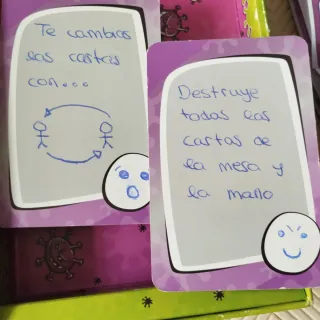 Te cambias
las cartas
con...
Destruye
todas las
cartas de
la mesa y
la mano